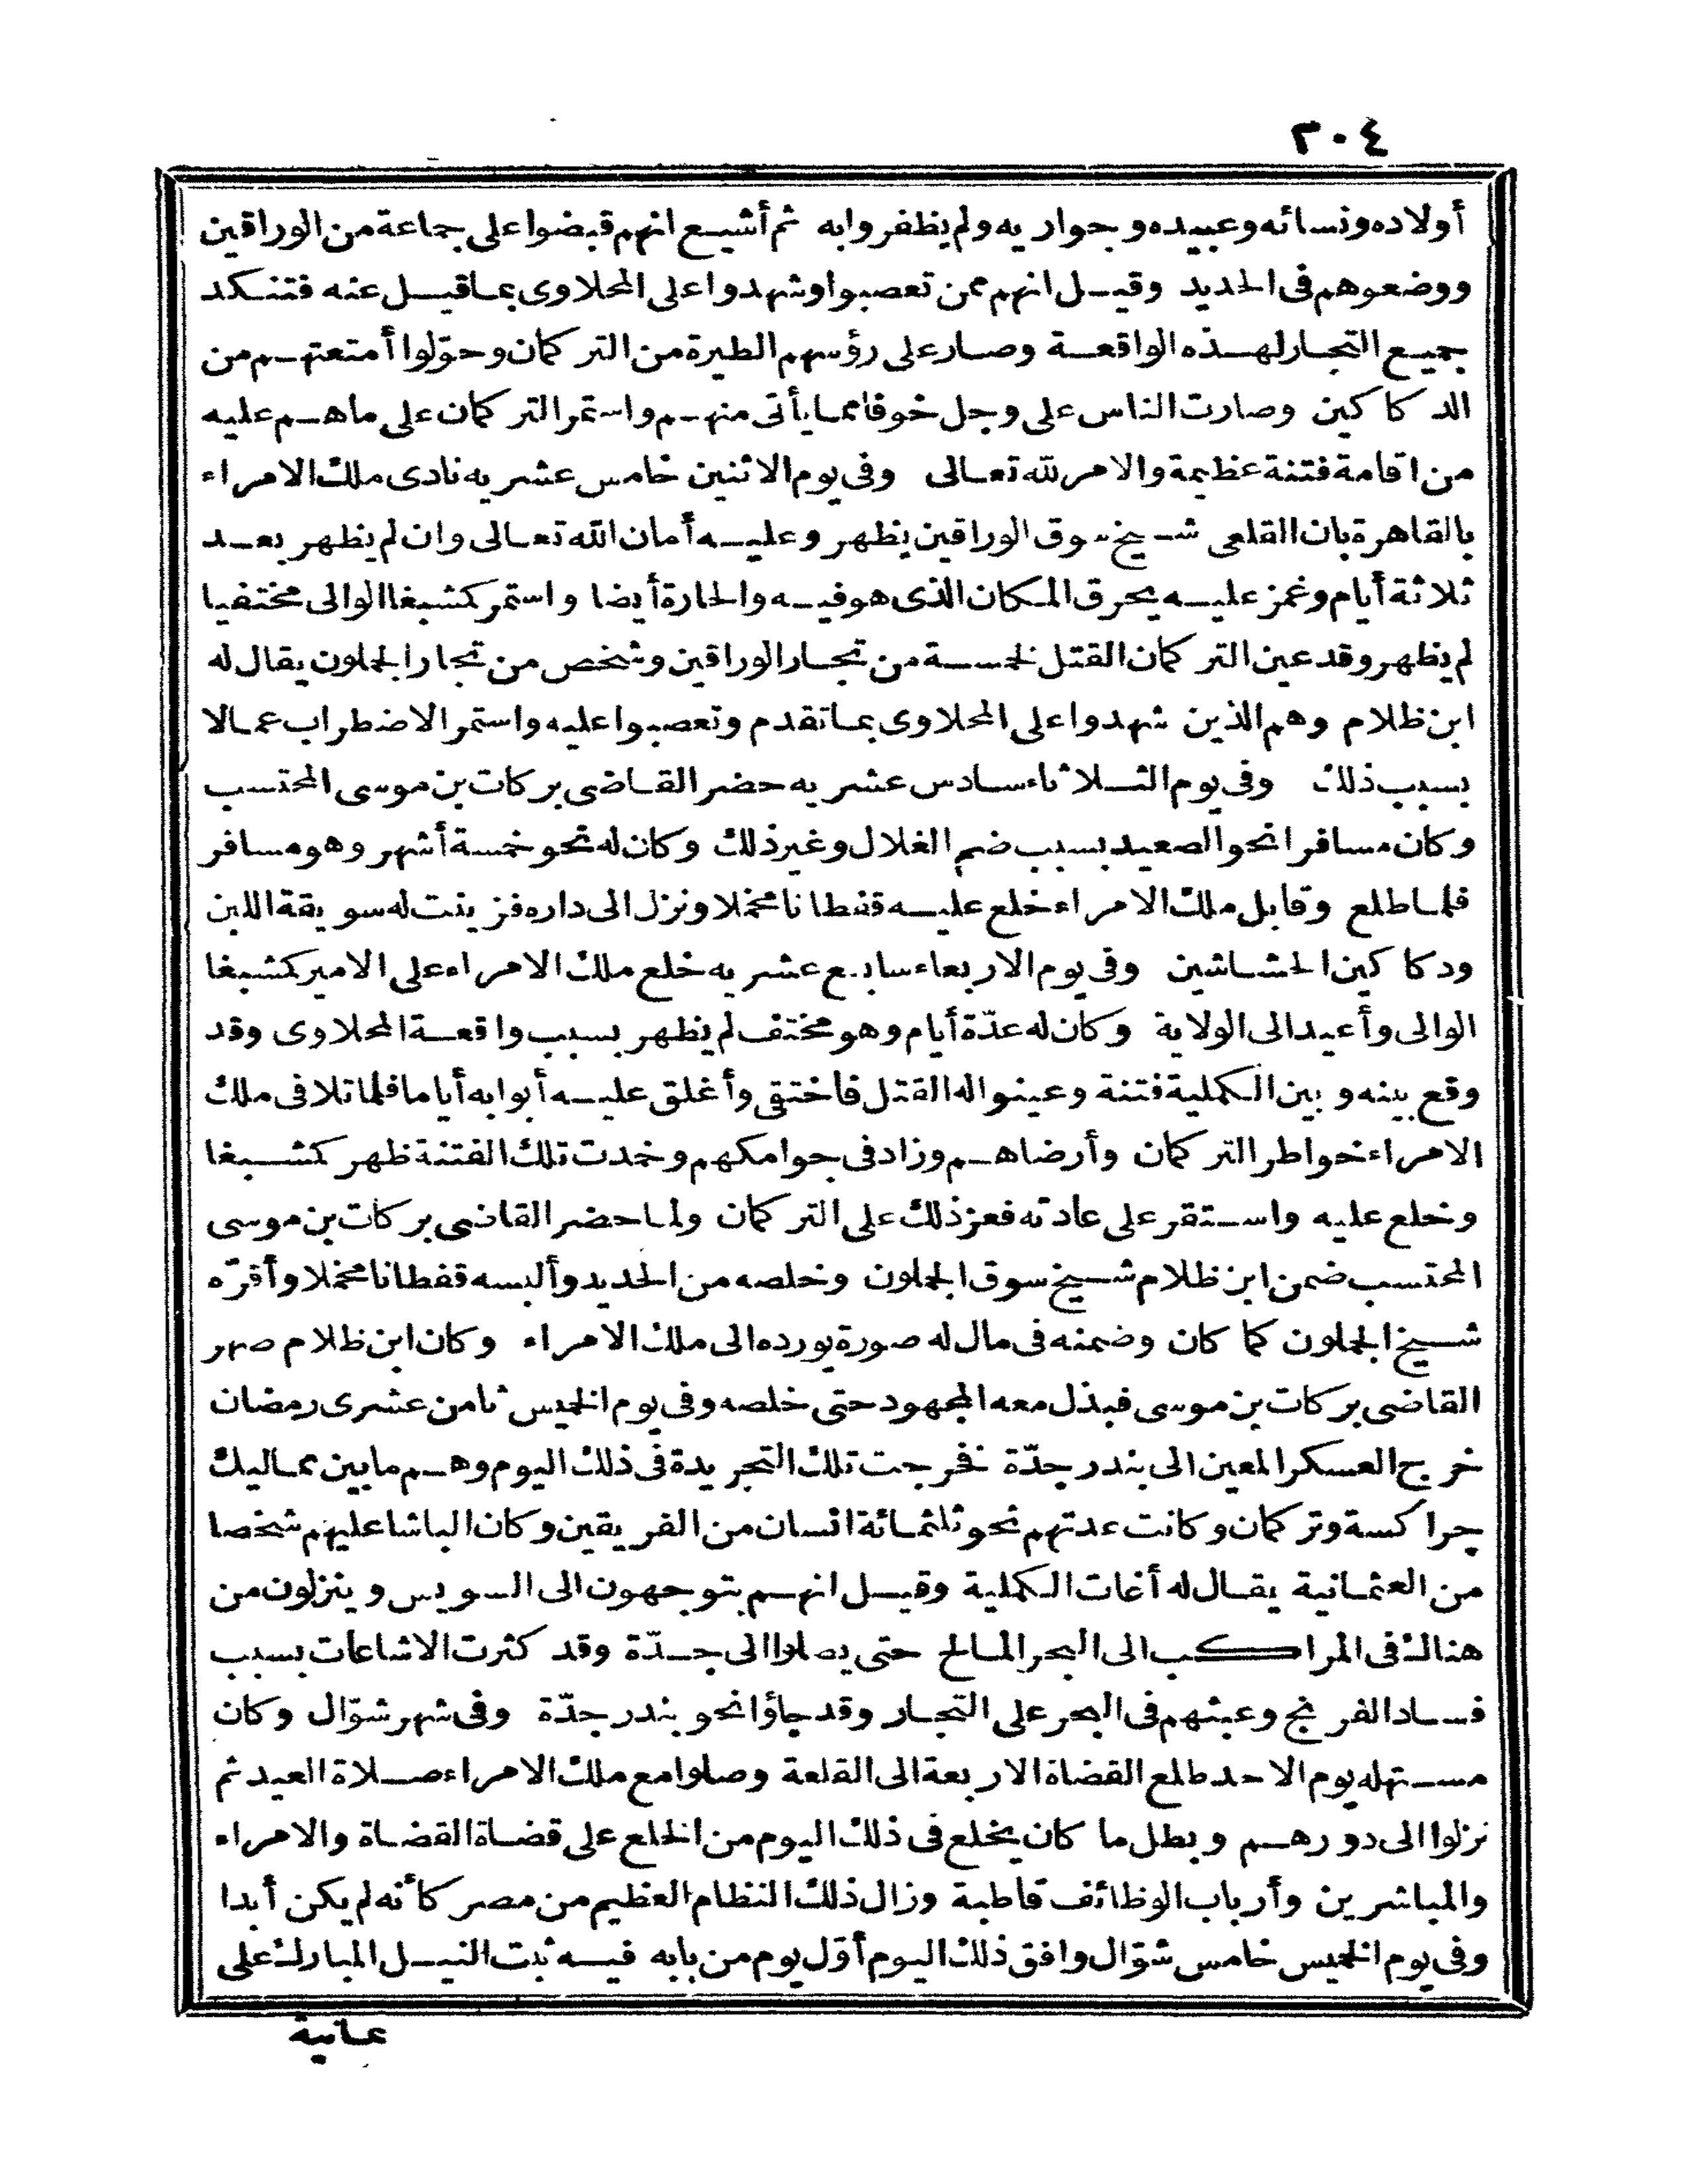 ٣٠٤
أولاده ونسائه وعبيده وجواريه ولم يظفروا به ثم أشيع انهم قبضوا على جماعة من الوراقين
ووضعوهم فى الحديد وقيل انهم ممن تعصبوا وشهدوا على المحلاوى بما قيل عنه فتنكد
جميع التجار لهذه الواقعة وصار على رؤسهم الطيرة من التركمان وحوّلوا أمتعتهم من
الدكاكين وصارت الناس على وجل خوفا مما يأتى منهم واستمر التركمان على ما هم عليه
من اقامة فتنة عظيمة والامر لله تعالى وفى يوم الاثنين خامس عشريه نادى ملك الامراء
بالقاهرة بان القلعى شيخ سوق الوراقين يظهر وعليه أمان الله تعالى وان لم يظهر بعد
ثلاثة أيام وغمز عليه يحرق المكان الذى هو فيه والحارة أيضا واستمر كشبغا الوالى مختفيا
لم يظهر وقد عين التركمان القتل لخمسة من تجار الوراقين وشخص من تجار الجملون يقال له
ابن ظلام وهم الذين شهدوا على المحلاوى بما تقدم وتعصبوا عليه واستمر الاضطراب عمالا
بسبب ذلك وفى يوم الثلاثاء سادس عشريه حضر القاضى بركات بن موسى المحتسب
وكان مسافرا نحو الصعيد بسبب ضم الغلال وغير ذلك وكان له نحو خمسة أشهر وهو مسافر
فلما طلع وقابل ملك الامراء خلع عليه قفطانا مخملا ونزل الى داره فزينت له سويقة اللبن
ودكاكين الحشاشين وفى يوم الاربعاء سابع عشريه خلع ملك الامراء على الامير كشبغا
الوالى وأعيد الى الولاية وكان له عدّة أيام وهو مختف لم يظهر بسبب واقعة المحلاوى وقد
وقع بينه وبين الكملية فتنة وعينوا له القتل فاختفى وأغلق عليه أبوابه أياما فلما تلافى ملك
الامراء خواطر التركمان وأرضاهم وزاد فى جوامكهم وخمدت تلك الفتنة ظهر كشبغا
وخلع عليه واستقر على عادته فعز ذلك على التركمان ولما حضر القاضى بركات بن موسى
المحتسب ضمن ابن ظلام شيخ سوق الجملون وخلصه من الحديد وألبسه قفطانا مخملا وأقرّه
شيخ الجملون كما كان وضمنه فى مال له صورة يورده الى ملك الامراء وكان ابن ظلام صهر
القاضى بركات بن موسى فبذل معه المجهود حتى خلصه وفى يوم الخميس ثامن عشرى رمضان
خرج العسكر المعين الى بندر جدّة فخرجت تلك التجريدة فى ذلك اليوم وهم ما بين مماليك
چراكسة وتركمان وكانت عدتهم نحو ثلثمائة انسان من الفريقين وكان الباشا عليهم شخصا
من العثمانية يقال له أغات الكملية وقيل انهم يتوجهون الى السويس وينزلون من
هناك فى المراكب الى البحر المالح حتى يصلوا الى جدّة وقد كثرت الاشاعات بسبب
فساد الفرنج وعبثهم فى البحر على التجار وقد جاؤا نحو بندر جدّة وفى شهر شوّال وكان
مستهله يوم الاحد طلع القضاة الاربعة الى القلعة وصلوا مع ملك الامراء صلاة العيد ثم
نزلوا الى دورهم وبطل ما كان يخلع فى ذلك اليوم من الخلع على قضاة القضاة والامراء
والمباشرين وأرباب الوظائف قاطبة وزال ذلك النظام العظيم من مصر كأنه لم يكن أبدا
وفى يوم الخميس خامس شوّال وافق ذلك اليوم أوّل يوم من بابه فيه ثبت النيل المبارك على